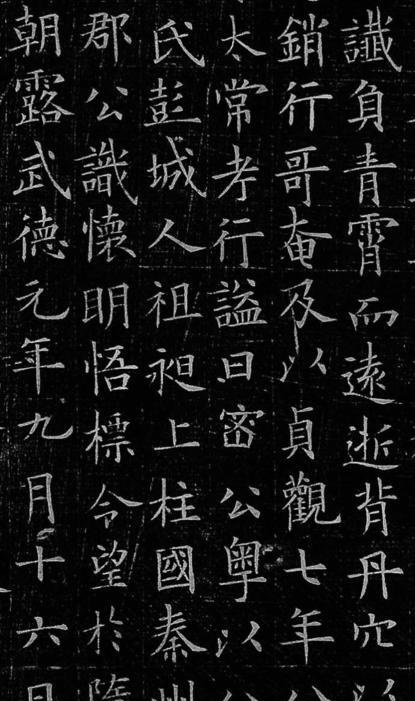 讖負青霄而遠逝背丹穴以
銷行哥奄及以貞觀七年公
太常考行謚曰密公粵以公
氏彭城人祖昶上柱國秦州
郡公識懷明悟標令望於隋
朝露武德元年九月十六日